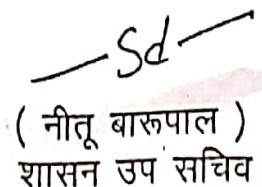 — Sd —
( नीतू बारूपाल )
शासन उप सचिव